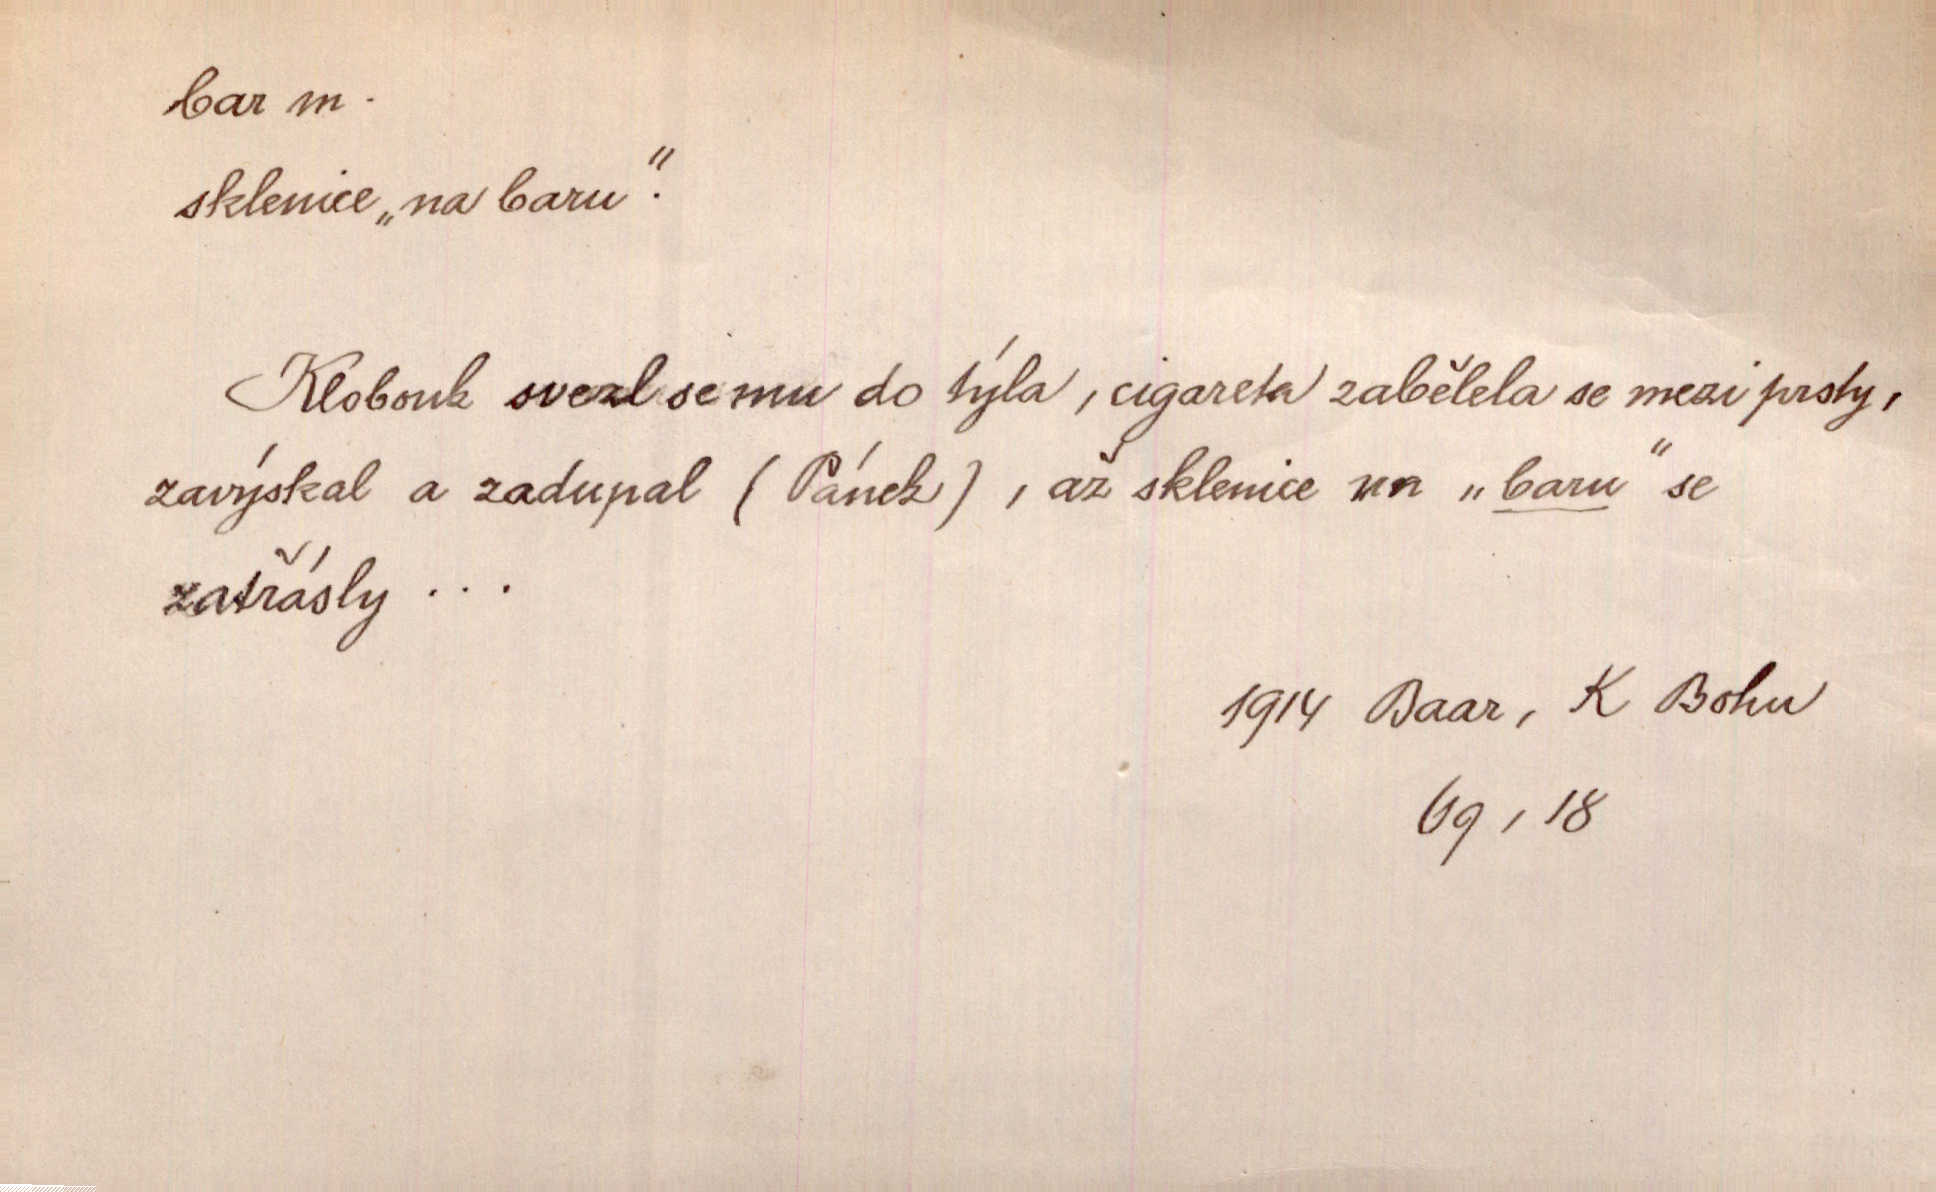 bar m.
sklenice „na baru“.
Klobouk svezl se mu do týla, cigareta zabělela se mezi prsty,
zavýskal a zadupal (Pánek), až sklenice na „baru“ se
zatřásly ...
1914 Baar, K Bohu
69, 18